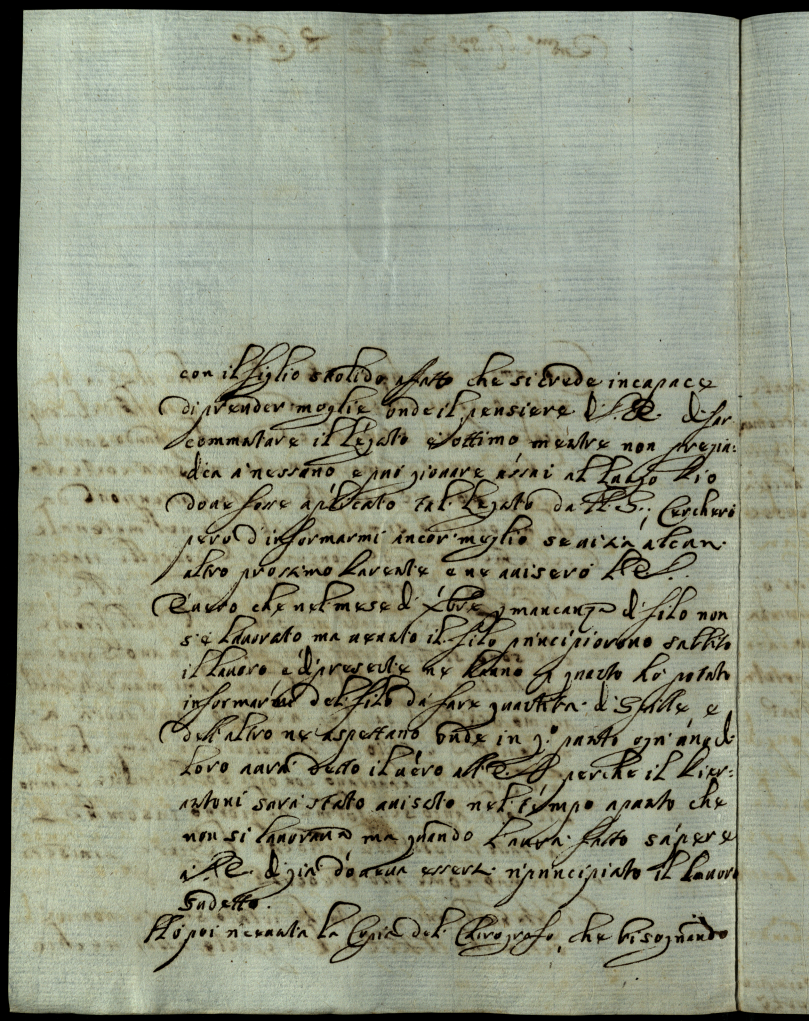 con il figlio stolido affatto che si crede incapace
di prender moglie onde il pensiere di V.E. di far
commutare il legato è ottimo mentre non pregiu:
dica a nessuno e può giovare assai al luogo Pio
doue fosse aplicato tal legato da V.E.; Cercherò
però d'informarmi ancor meglio se ui sia alcun
altro prossimo Parente e ne auiserò V.E.
È uero che nel mese di Xbre p mancanza di filo non
s'è lauorato ma uenuto il filo principiorono subbito
il lauoro e di presente ne hanno p quanto hò potuto
informarmi del filo da fare quantità di Spalle e
dell'altro ne aspettano onde in q.o punto ogn'uno di
loro aurà detto il uero all'E.V. perche il Pier:
antoni sarà stato auisato nel tempo apunto che
non si lauoraua ma quando l'aurà fatto sapere
a V.E. di già doueua essere ripuncipiato il lauoro
sudetto.
Hò poi riceuuta la Copia del Chirografo, che bisognando